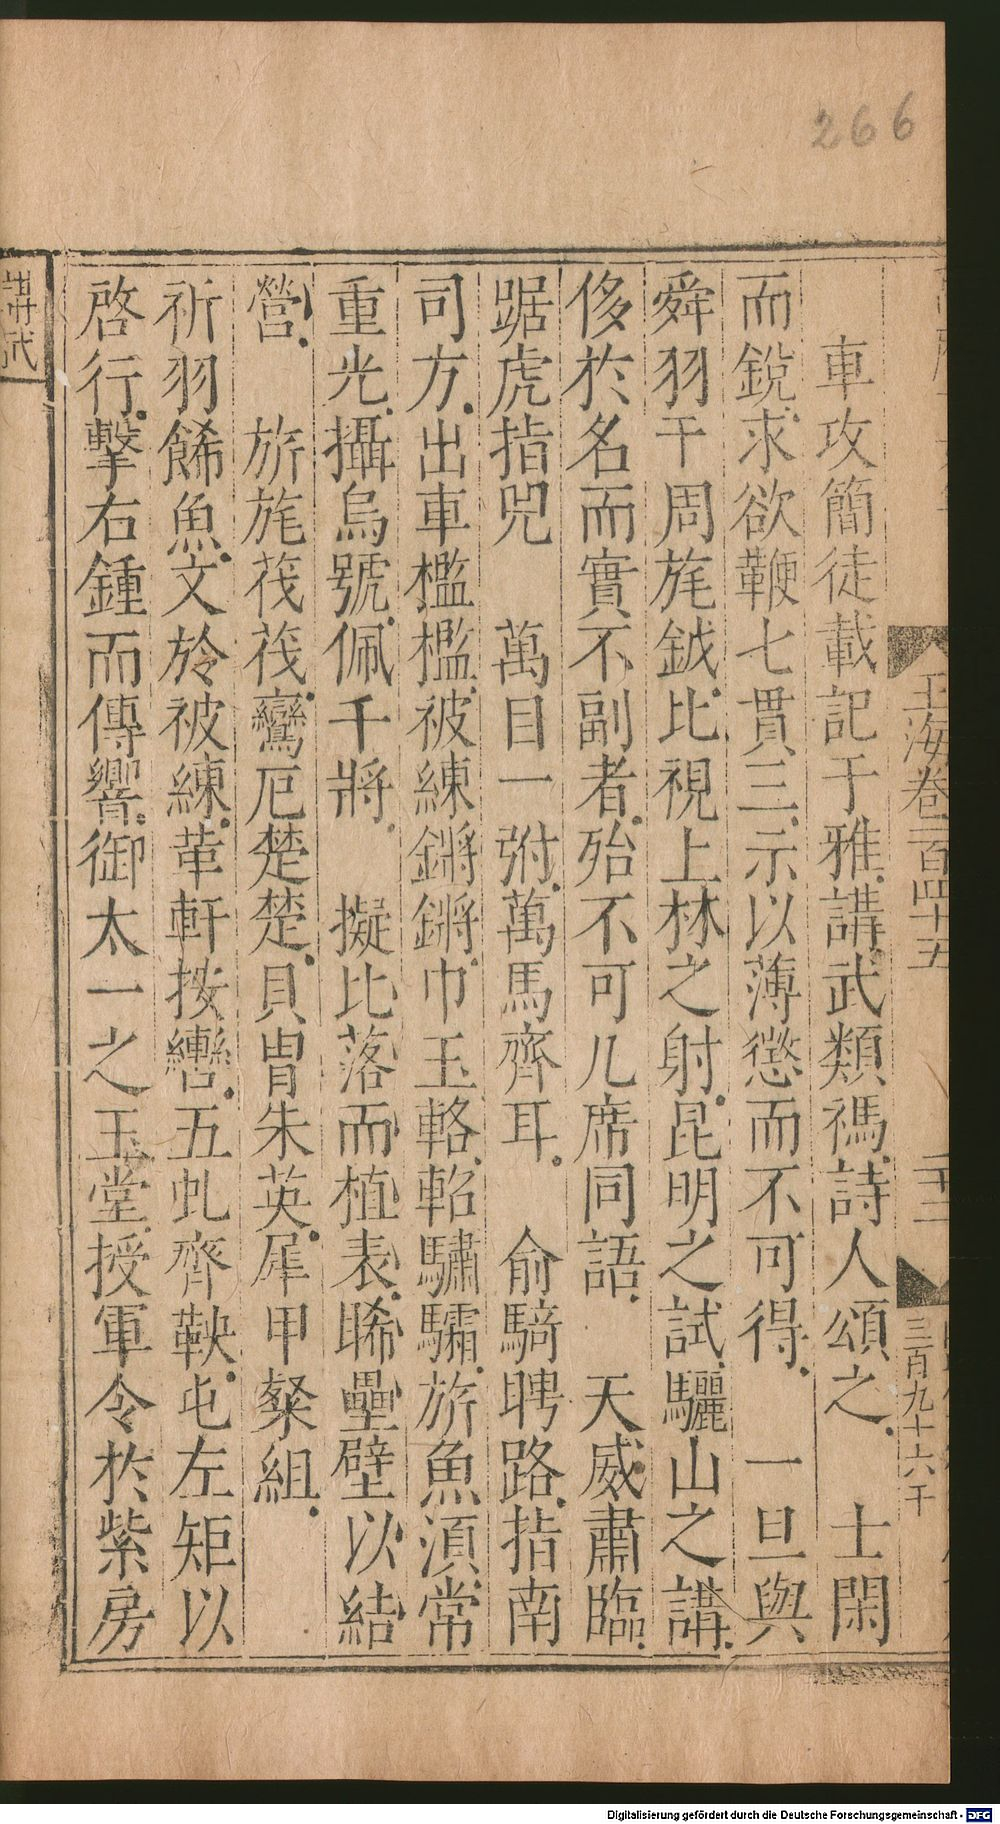 266
玉海卷一百四十五
二十二
三百九十六干
車攻簡徒載記于雅講武類禡詩人頌之 士閑
而銳求欲鞭七貫三示以薄懲而不可得 一旦與
舜羽干周旄鉞比視上林之射昆明之試驪山之講
侈於名而實不副者殆不可几席同語 天威肅臨
踞虎指兕 萬目一弣萬馬齊耳 俞騎聘路指南
司方出車檻檻被練鏘鏘巾玉輅軺驌驦旂魚湏常
重光攝烏號佩干將 擬比落而植表睎壘壁以結
營 旂旄筏筏鸞厄楚楚貝冑朱英犀甲粲組
祈羽餙魚文於被練葦軒按轡五虬齊鞅屯左矩以
啓行擊右鍾而傳響御太一之玉堂授軍令於紫房
講武
Digitalisierung gefördert durch die Deutsche Forschungsgemeinschaft - DFG